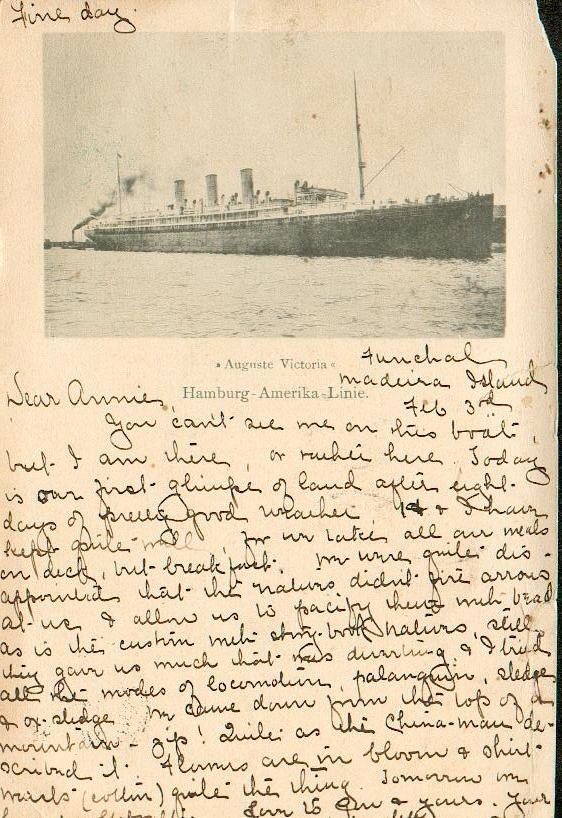 Fine day.
» Auguste Victoria «
Hamburg-Amerika-Linie.
Funchal
Madeira Island
Feb 3rd
Dear Annie,
You can't see me on this boat,
but I am there, or rather here. Today
is our first glimpse of land after eight
days of pretty good weather. & I have
kept quite well, for we take all our meals
on deck, but breakfast. We were quite dis-
appointed that the natives didn't fire arrows
at us & allow us to pacify them with bead
as is the custom with story-book natives, still
they gave us much that was diverting & I tried
all the modes of locomotion, palanquin, sledge
& ox-sledge. We came down from the top of a
mountain - zip! Quite as the China-man de-
scribed it. Flowers are in bloom & shirt
waists (cotton) quite the thing. Tomorrow we
Love to you & yours. Your